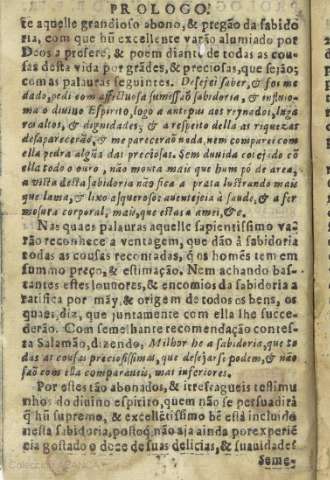 PROLOGO.
te aquelle grandioso abono, & pregão da sabido
ria, com que hũ excellente varão alumiado por
Deos a prefere, & poem diante de todas as cou-
sas desta vida por grãdes, & preciosas, que sejão;
com as palauras seguintes. Desejei saber, & foi me
dado, pedi com affectuosa sumissão sabidoria, & insinuio-
ma o diuino Espirito, logo a antepus aos reynados, luga
res altos, & dignidades, & a respeito della as riquezas
desaparecerão, & me parecerão nada, nem comparei com
ella pedra algũa das preciosas. Sem duuida cotejado cõ
ella todo o ouro, não monta mais que hum pó de area,
a vista desta sabidoria não fica a prata lustrando mais
que lama, & lixo asqueroso: auentejoia à saude, & a fer
mosura corporal, mais, que estas a amei, &c.
Nas quaes palauras aquelle sapientissimo va-
rão reconhece a ventagem, que dão à sabidoria
todas as cousas recontadas, q̃ os homẽs tem em
summo preço, & estimação. Nem achando bas-
tantes estes louuores, & encomios da sabidoria a
ratifica por mãy, & origem de todos os bens, os
quaes, diz, que juntamente com ella lhe succe-
derão. Com semelhante recomendação contes-
ta Salamão, dizendo, Milhor he a sabidoria, que to
das as cousas preciosissimas, que desejarse podem, & não
são com ella comparaueis, mas inferiores.
Por estes tão abonados, & irrefragueis testimu
nhos do diuino espirito, quem não se persuadirà
q̃ hũ supremo, & excellẽtissimo bẽ està incluido
nesta sabidoria, postoq̃ não aja ainda por experiẽ
cia gostado o doce de suas delicias, & suauidades
Seme-